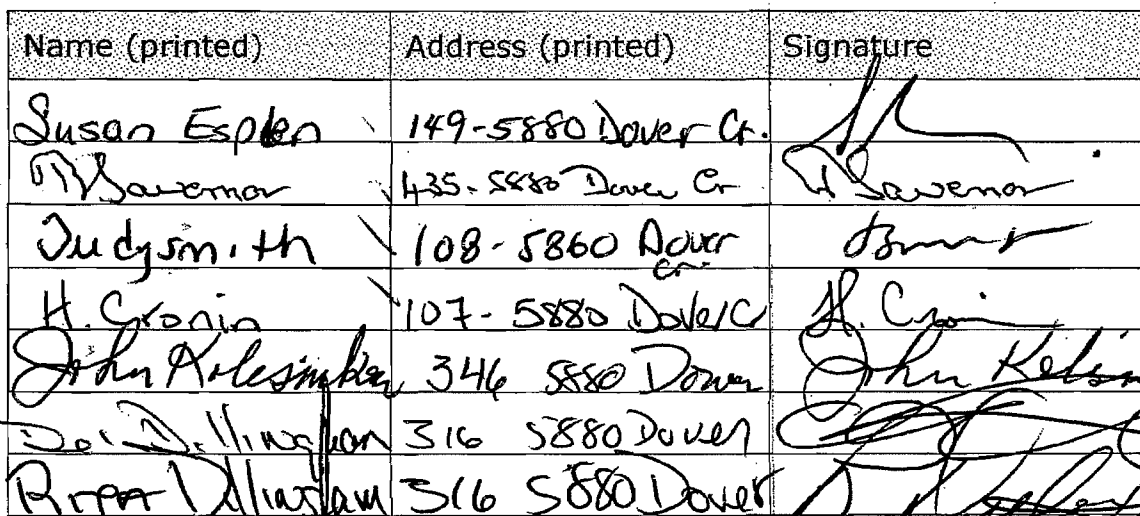 Name (printed) Address (printed) Signature
Susan Esplen 149-5880 Dover Cr.
Savernor 435-5880 Dover Cr Savernor
Judy Smith 108-5860 Dover
Cr.
H. Cronin 107-5880 Dover Cr H. Cronin
John 346 5880 Dover John
Dillingham 316 5880 Dover
Dillingham 316 5880 Dover